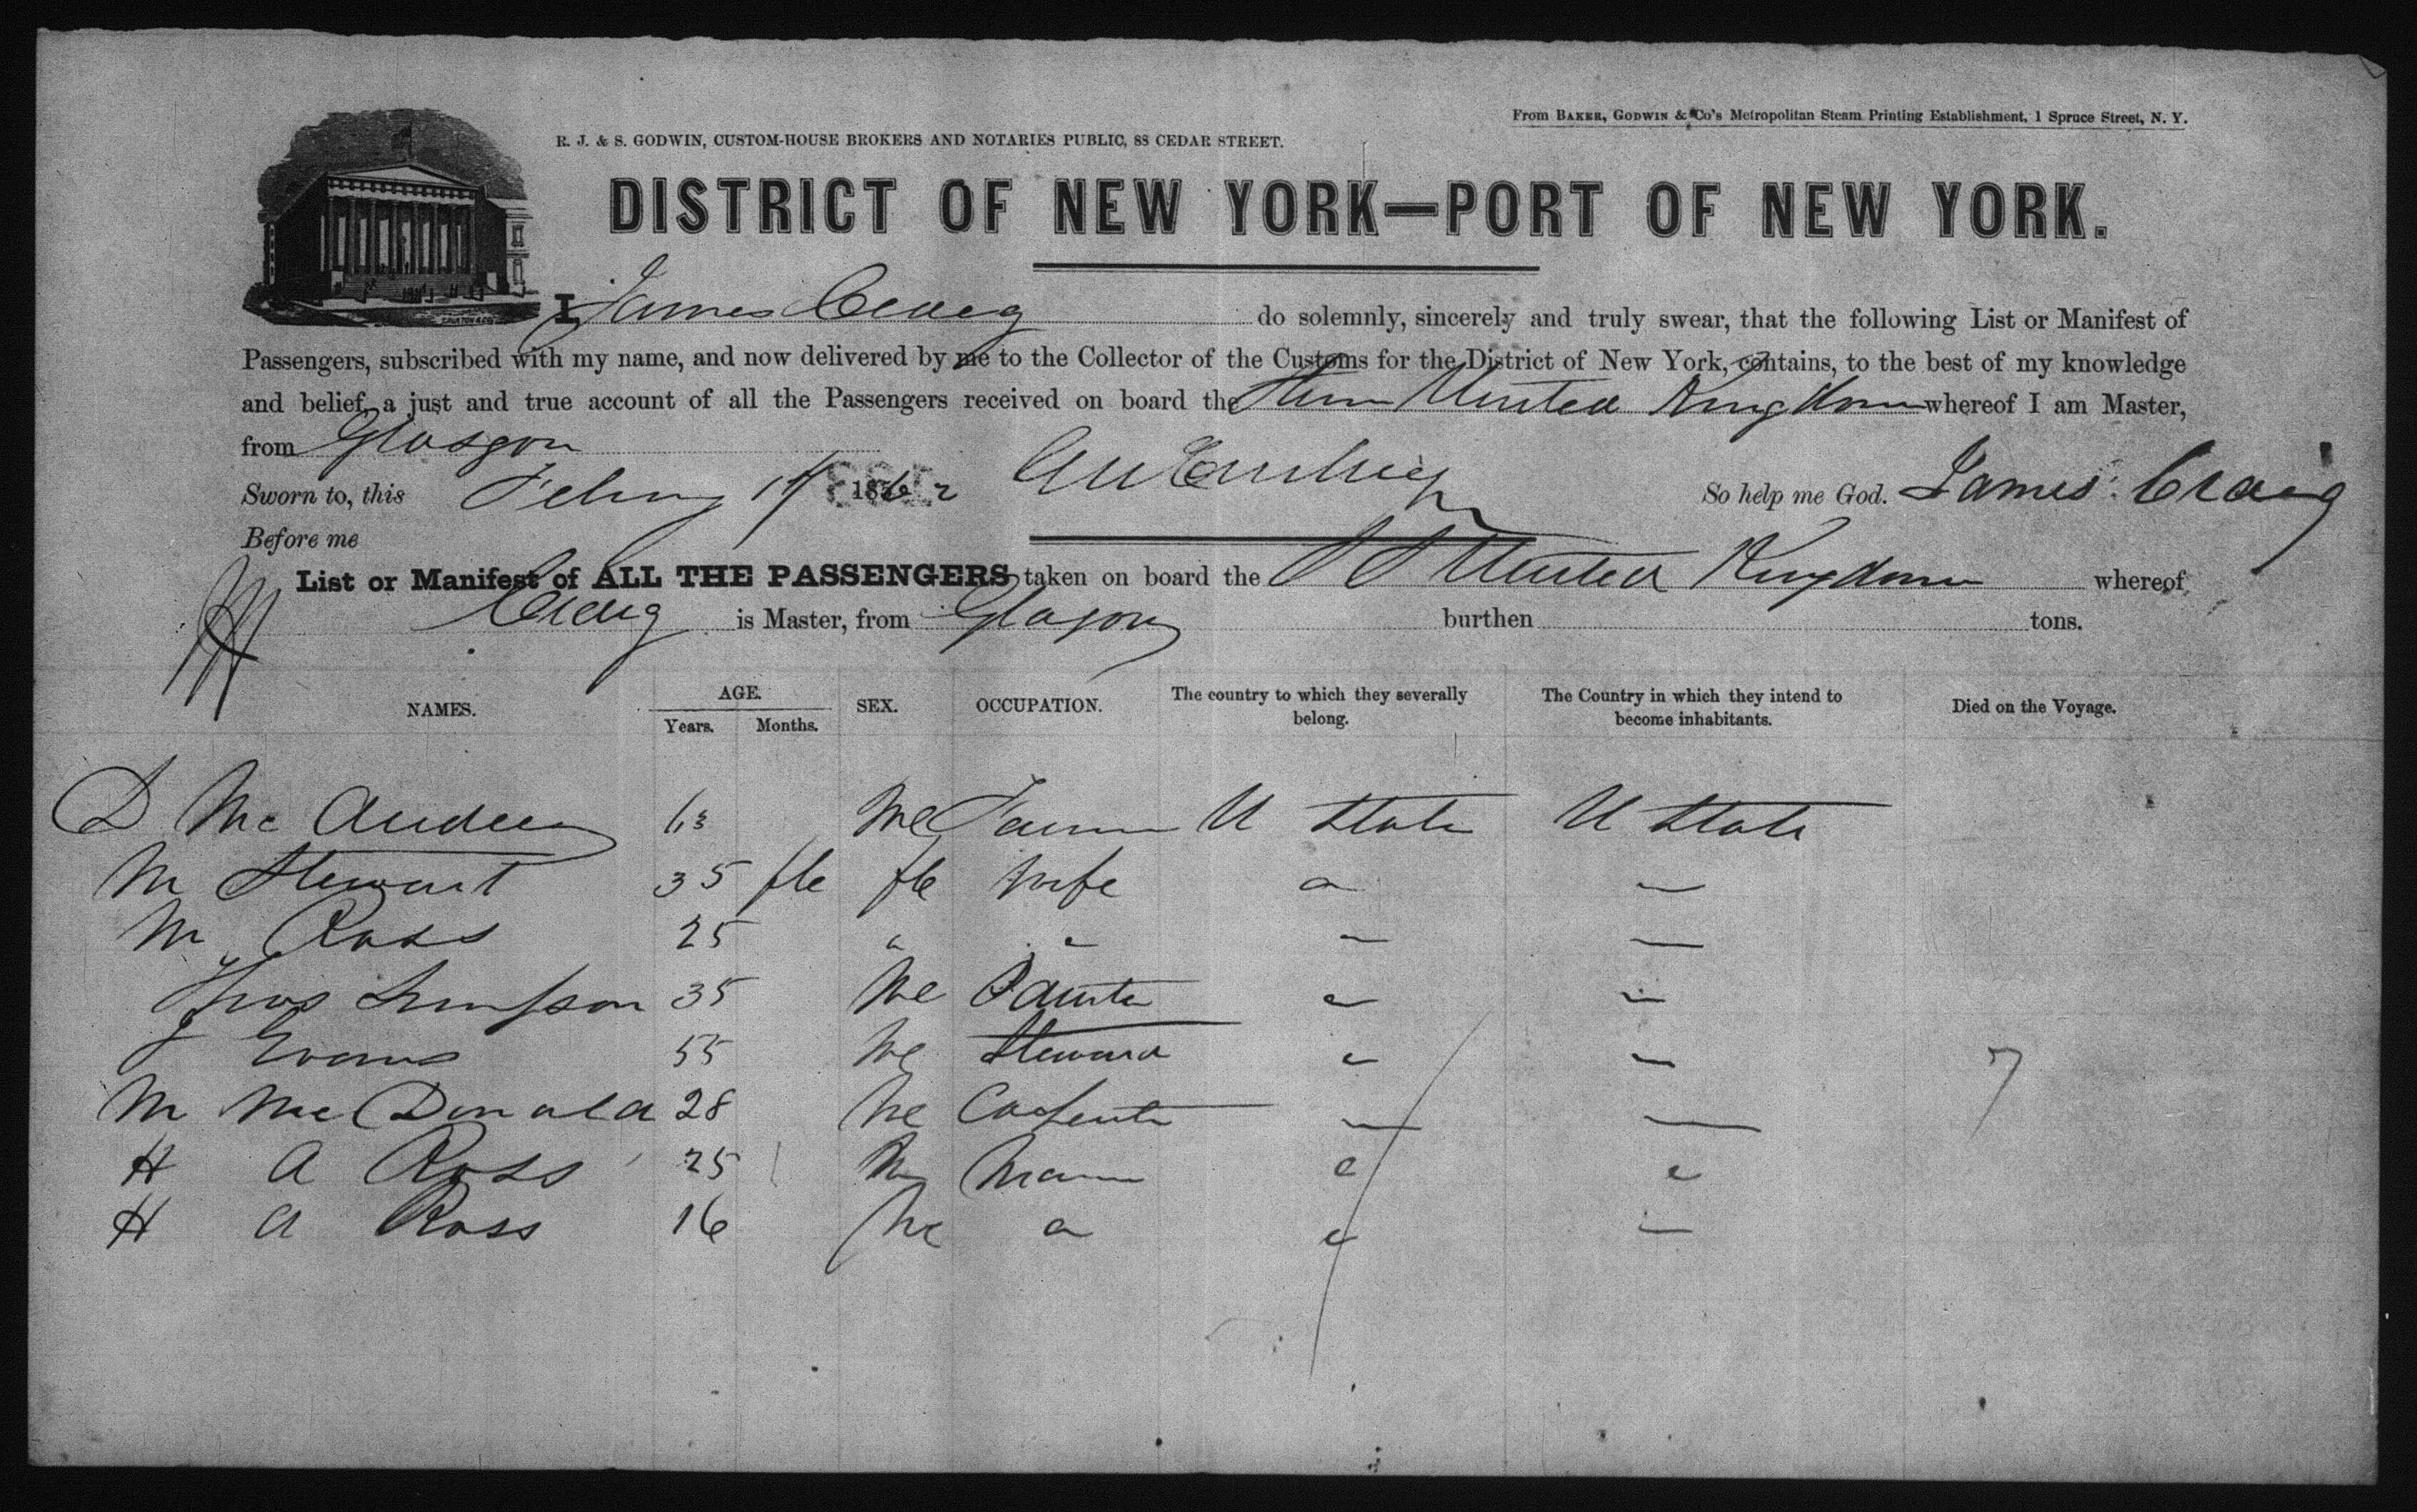 From BAKER, GODWIN & Co's Metropolitan Steam Printing Establishment, 1 Spruce Street, N. Y.
R. J. & S. GODWIN, CUSTOM-HOUSE BROKERS AND NOTARIES PUBLIC, 88 CEDAR STREET.
DISTRICT OF NEW YORK—PORT OF NEW YORK.
I, James Craig do solemnly, sincerely and truly swear, that the following List or Manifest of
Passengers, subscribed with my name, and now delivered by me to the Collector of the Customs for the District of New York, contains, to the best of my knowledge
and belief, a just and true account of all the Passengers received on board the United Kingdom whereof I am Master,
from Glasgow
Sworn to, this Febry 17 1862 So help me God. James Craig
Before me
List or Manifest of ALL THE PASSENGERS taken on board the SS United Kingdom whereof
Craig is Master, from Glasgow burthen tons.
NAMES. AGE. Years. Months. SEX. OCCUPATION. The country to which they severally belong. The Country in which they intend to become inhabitants. Died on the Voyage.
D Mc 63 Me U State U State
M Stewart 35 fle fle Wife
M Ross 25 "
Simpson 35 Me Painter
J Evans 55 Me Steward
M McDonald 28 Me Carpenter
H A Ross 25 M
H A Ross 16 Me
7